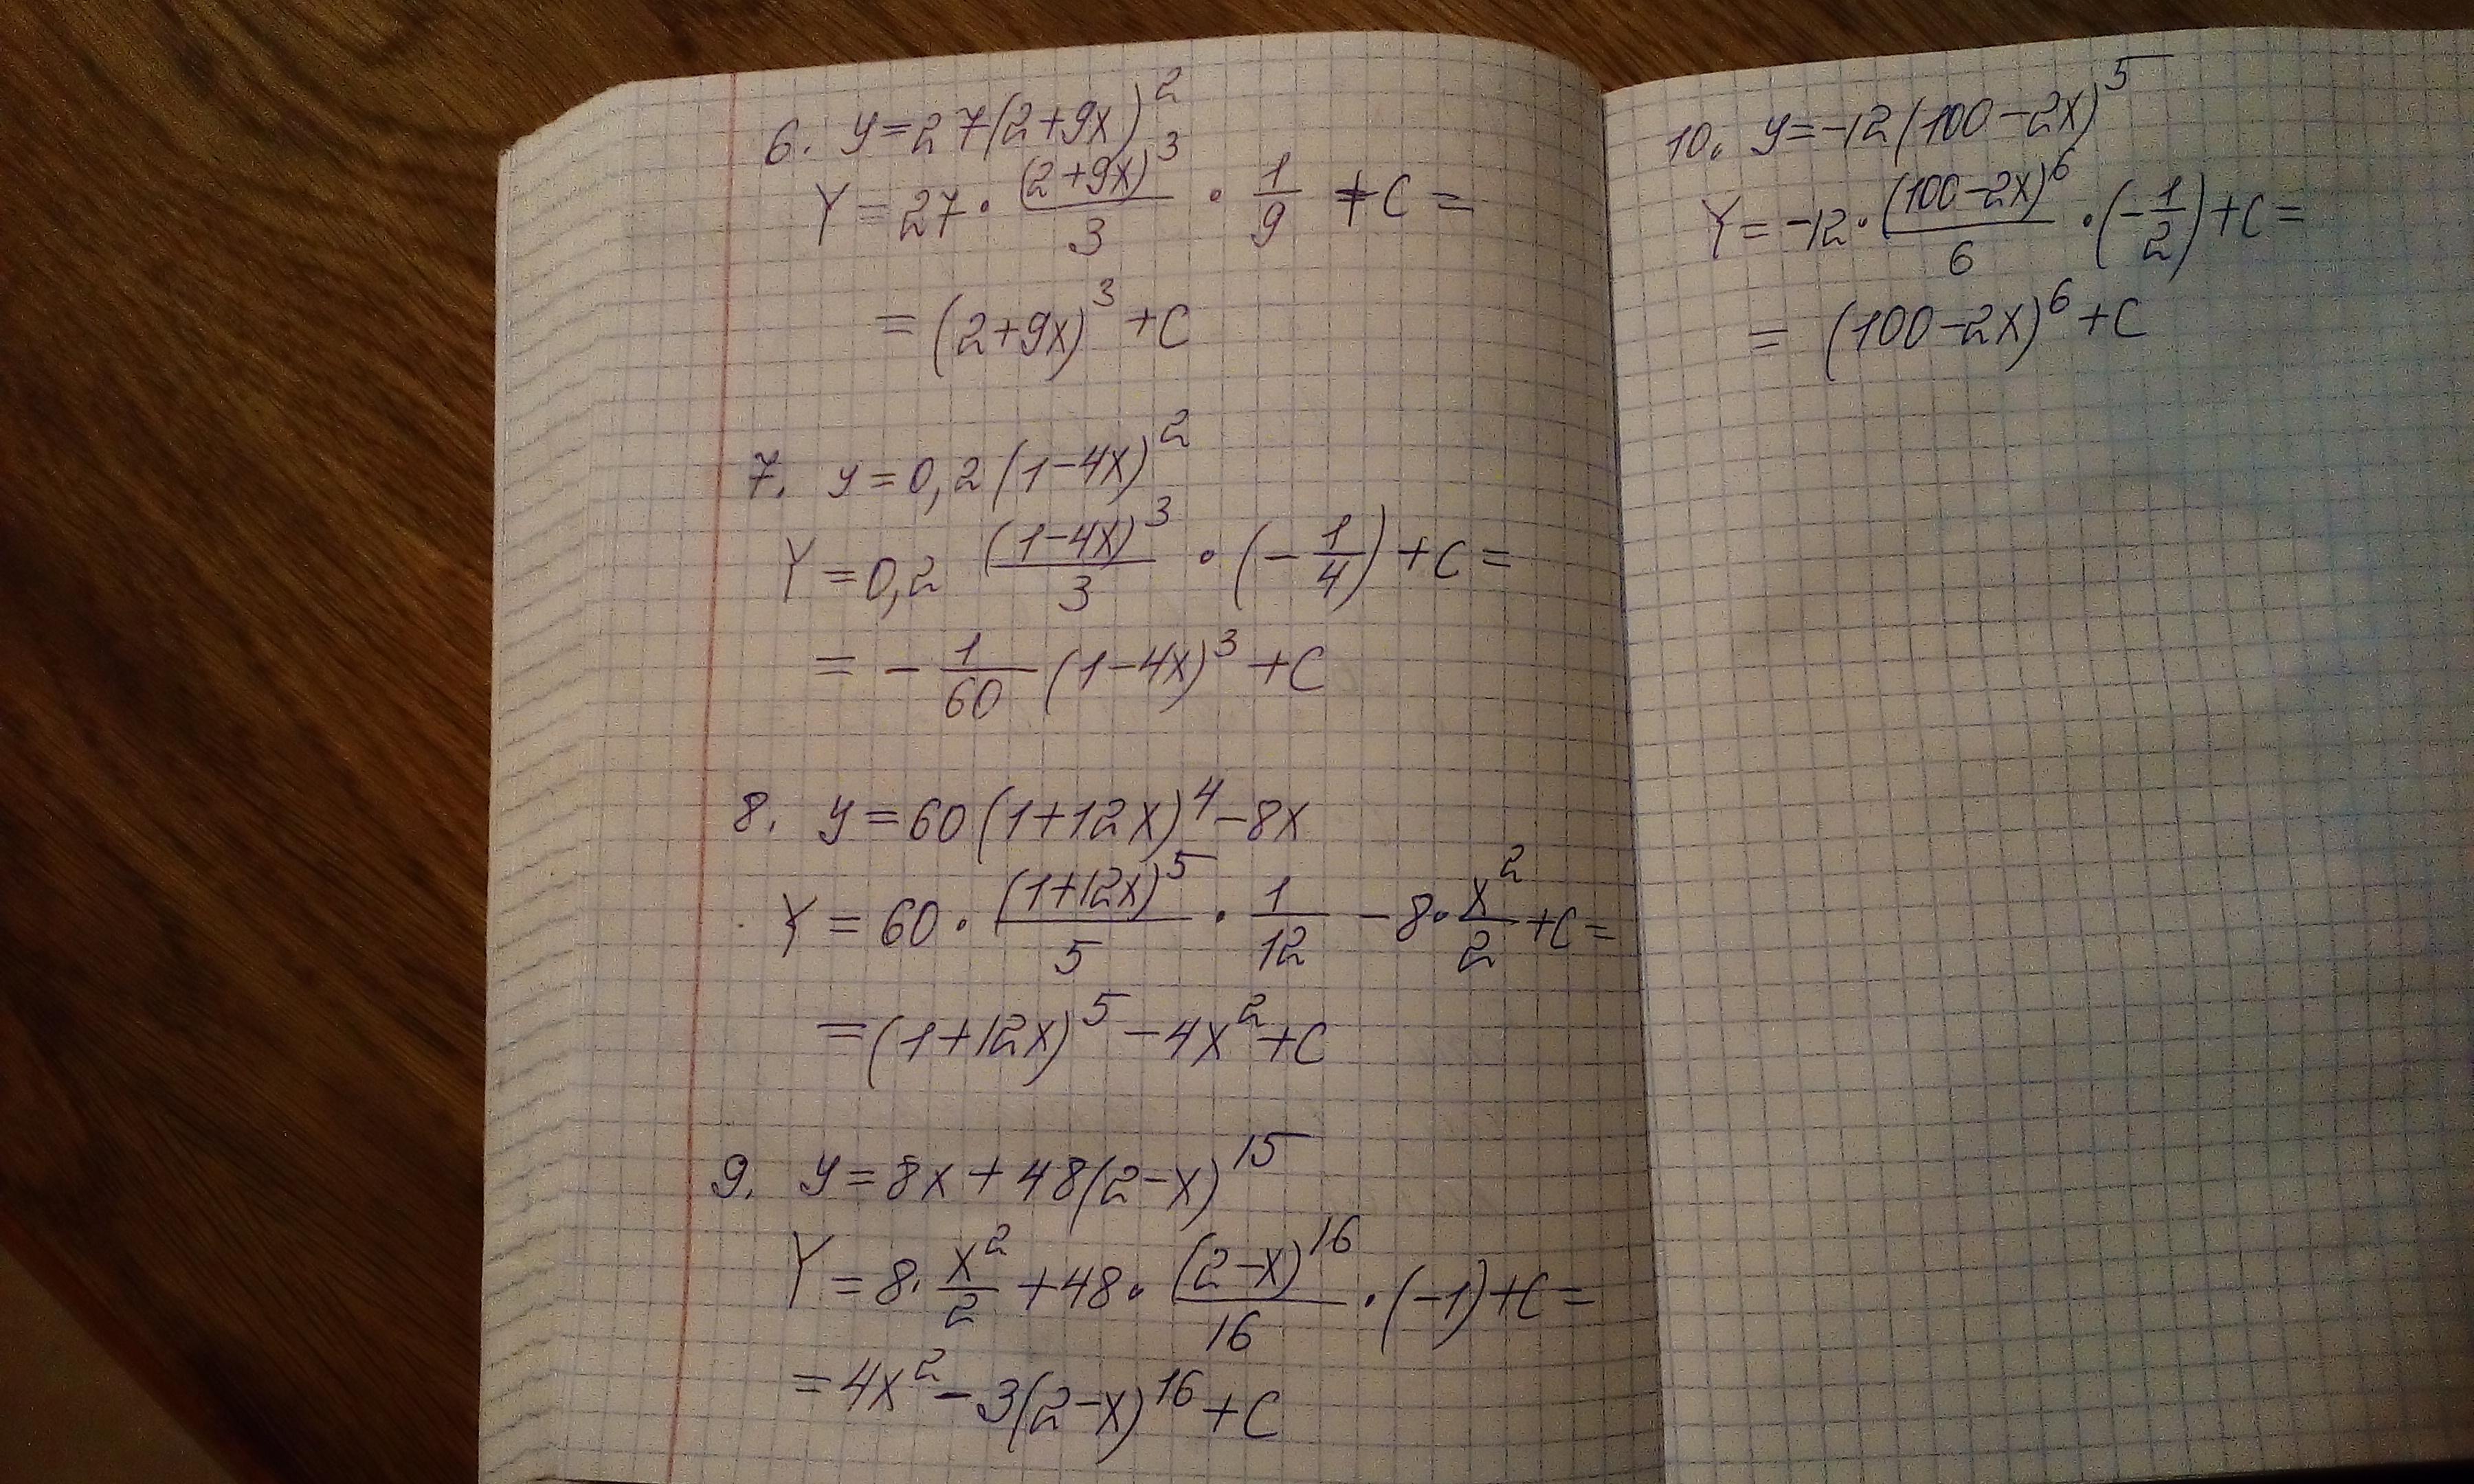 6. y=27(2+9x)²
Y=27·(2+9x)³/3 · 1/9 +C=
=(2+9x)³+C
7. y=0,2(1-4x)²
Y=0,2 (1-4x)³/3 ·(-1/4)+C=
= -1/60(1-4x)³+C
8. y=60(1+12x)⁴-8x
Y=60·(1+12x)⁵/5 · 1/12 -8·x²/2+C=
=(1+12x)⁵-4x²+C
9. y=8x+48(2-x)¹⁵
Y=8·x²/2+48·(2-x)¹⁶/16·(-1)+C=
=4x²-3(2-x)¹⁶+C
10. y=-12(100-2x)⁵
Y=-12·(100-2x)⁶/6·(-1/2)+C=
= (100-2x)⁶+C